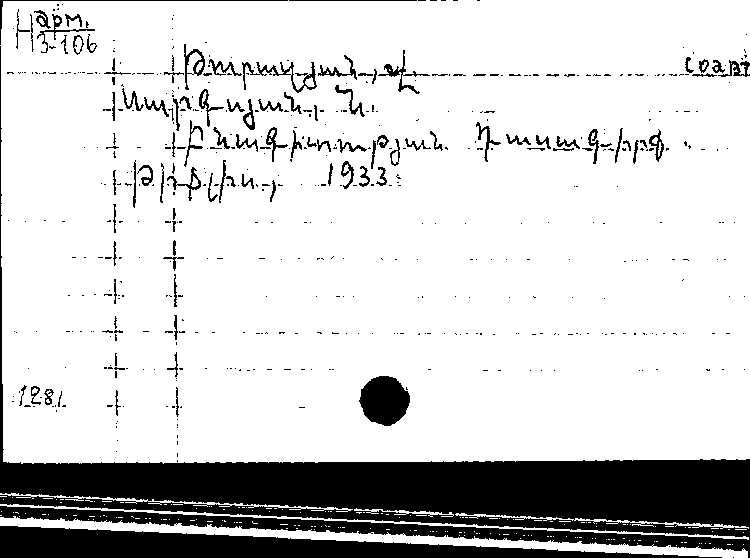 Н арм.
3-106
соавт
Սարգսյան, Ն.
Բնագիտության Դասագիրք.
Թիֆլիս, 1933:
1281